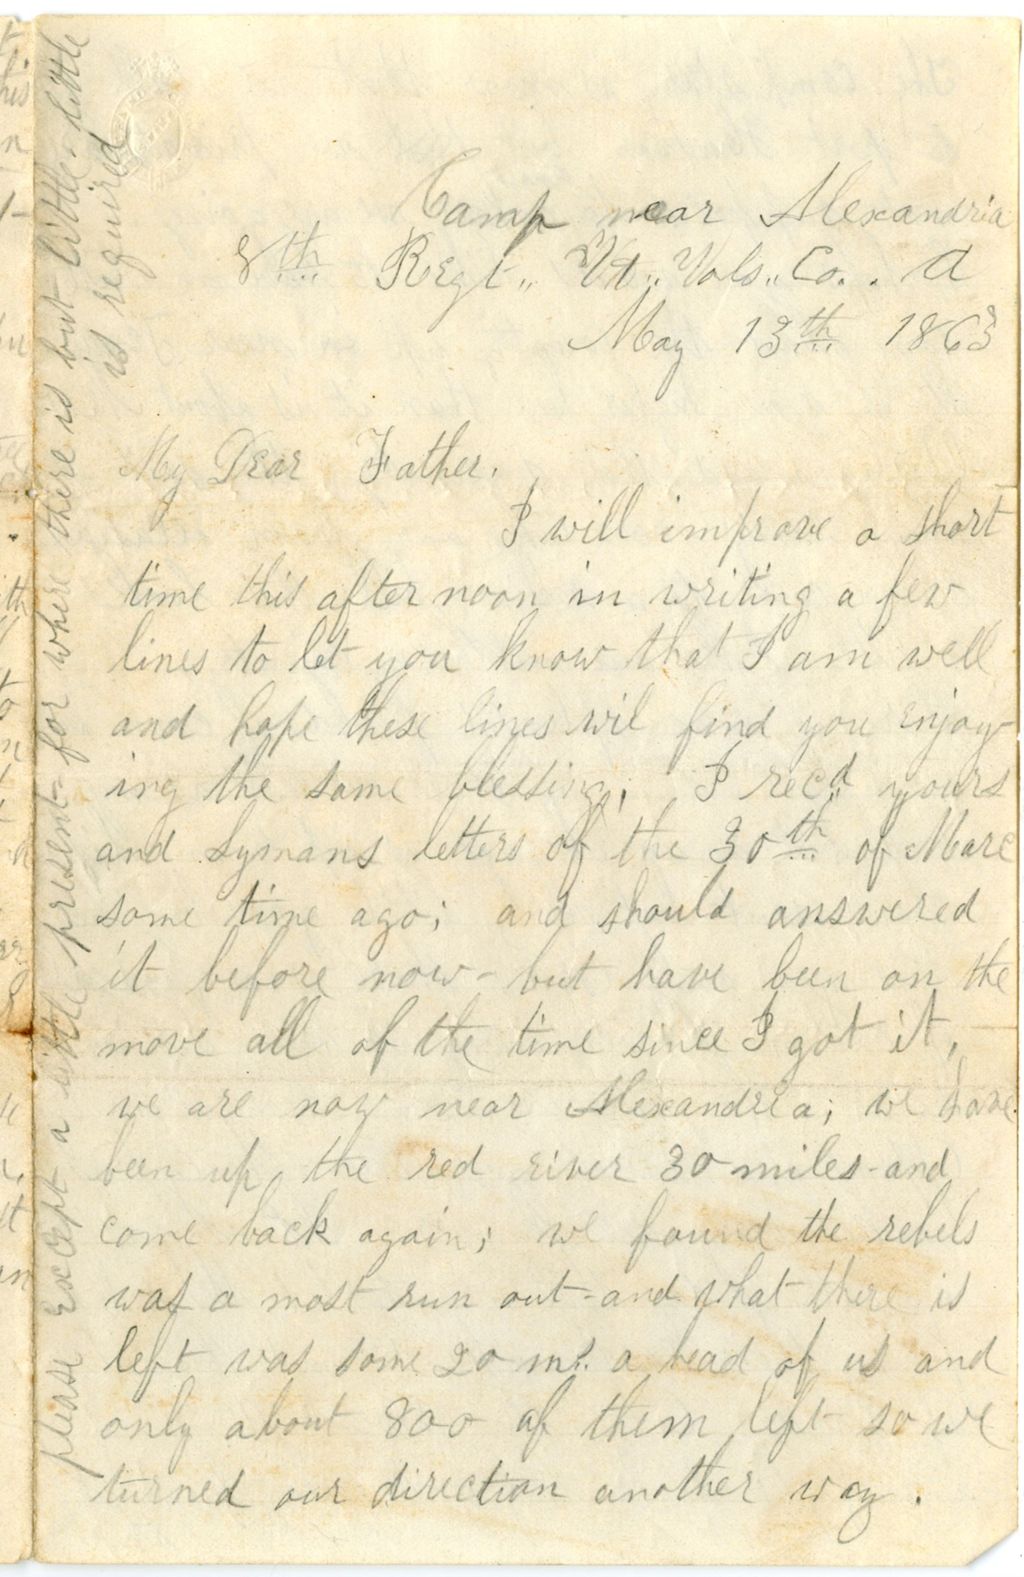 Camp near Alexandria
8th Regt,, Vt,, Vols,, Co.. A
May 13th 1863
My Dear Father.
I will improve a short
time this after noon in writing a few
lines to let you know that I am well
and hope these lines wil find you enjoy-
ing the same blessing; I rec,d yours
and Lymans letters of the 30th of Marc
some time ago; and should answered
it before now - but have been on the
move all of the time since I got it,
we are now near Alexandria; we have
been up the red river 30 miles - and
come back again; we found the rebels
was a most run out - and what there is
left was some 20 ms. a head of us and
only about 800 of them left so we
turned our direction another way.
please Except a little present - for where there is but little - little
is required